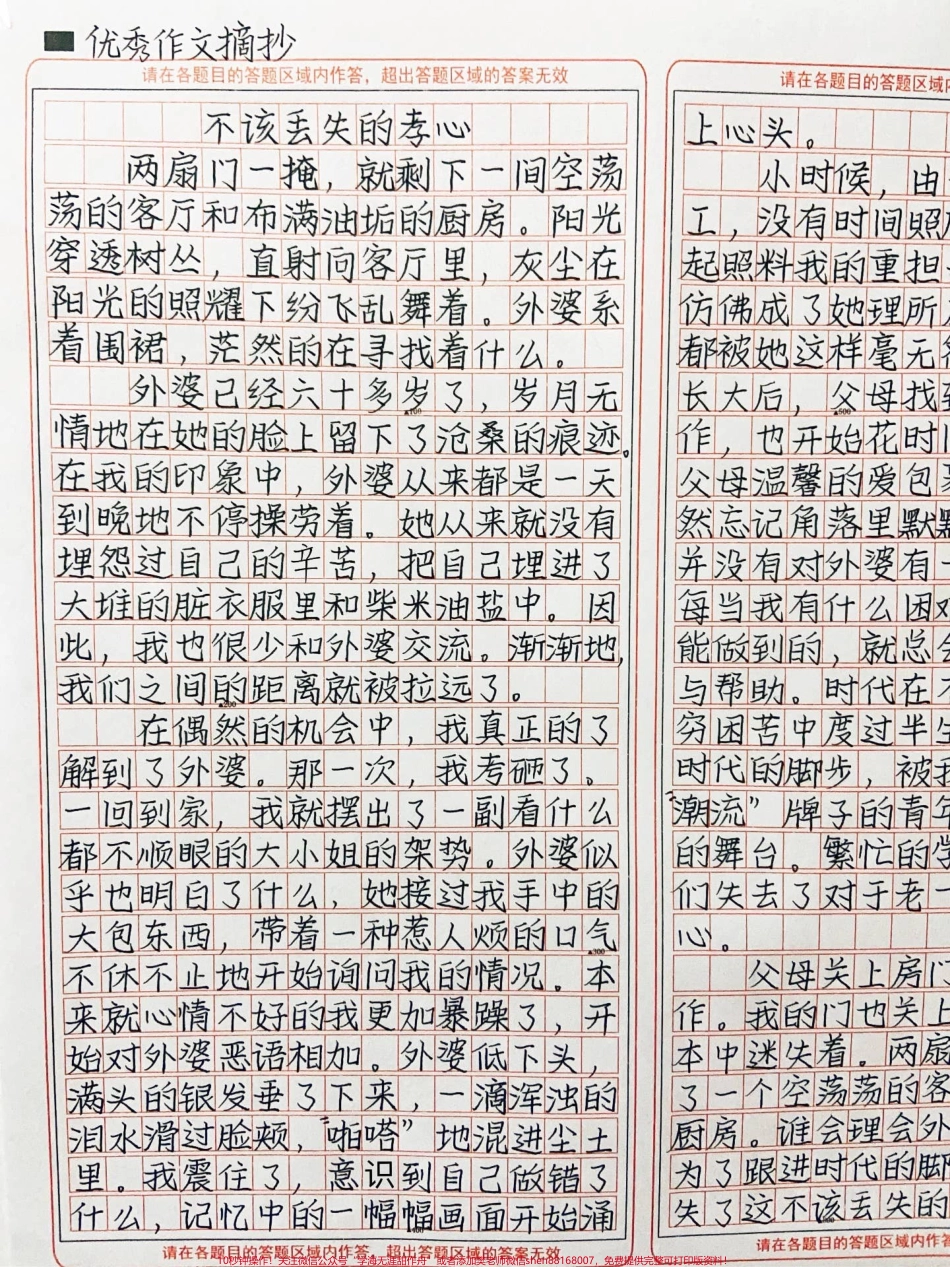 优秀作文摘抄
请在各题目的答题区域内作答，超出答题区域的答案无效
不该丢失的孝心
两扇门一掩，就剩下一间空荡
荡的客厅和布满油垢的厨房。阳光
穿透树丛，直射向客厅里，灰尘在
阳光的照耀下纷飞乱舞着。外婆系
着围裙，茫然的在寻找着什么。
外婆已经六十多岁了，岁月无
▲100
情地在她的脸上留下了沧桑的痕迹。
在我的印象中，外婆从来都是一天
到晚地不停操劳着。她从来就没有
埋怨过自己的辛苦，把自己埋进了
大堆的脏衣服里和柴米油盐中。因
此，我也很少和外婆交流。渐渐地，
我们之间的距离就被拉远了。
▲200
在偶然的机会中，我真正的了
解到了外婆。那一次，我考砸了。
一回到家，我就摆出了一副看什么
都不顺眼的大小姐的架势。外婆似
乎也明白了什么，她接过我手中的
大包东西，带着一种惹人烦的口气
▲300
不休不止地开始询问我的情况。本
来就心情不好的我更加暴躁了，开
始对外婆恶语相加。外婆低下头，
满头的银发垂了下来，一滴浑浊的
泪水滑过脸颊，“啪嗒”地混进尘土
里。我震住了，意识到自己做错了
什么，记忆中的一幅幅画面开始涌
请在各题目的答题区域内作答，超出答题区域的答案无效
请在各题目的答题区域内
上心头。
小时候，由
工，没有时间照
起照料我的重担
仿佛成了她理所
都被她这样毫无
长大后，父母找
▲500
作，也开始花时
父母温馨的爱包
然忘记角落里默
并没有对外婆有
每当我有什么困
能做到的，就总
与帮助。时代在
穷困苦中度过半
时代的脚步，被
“潮流”牌子的青
的舞台。繁忙的
们失去了对于老一
心。
父母关上房门
作。我的门也关上
本中迷失着。两扇
了一个空荡荡的客
厨房。谁会理会外
为了跟进时代的脚
失了这不该丢失的
请在各题目的答题区域内作答
10秒钟操作！关注微信公众号“学海无涯甜作舟”或者添加樊老师微信shen88168007，免费提供完整可打印版资料！